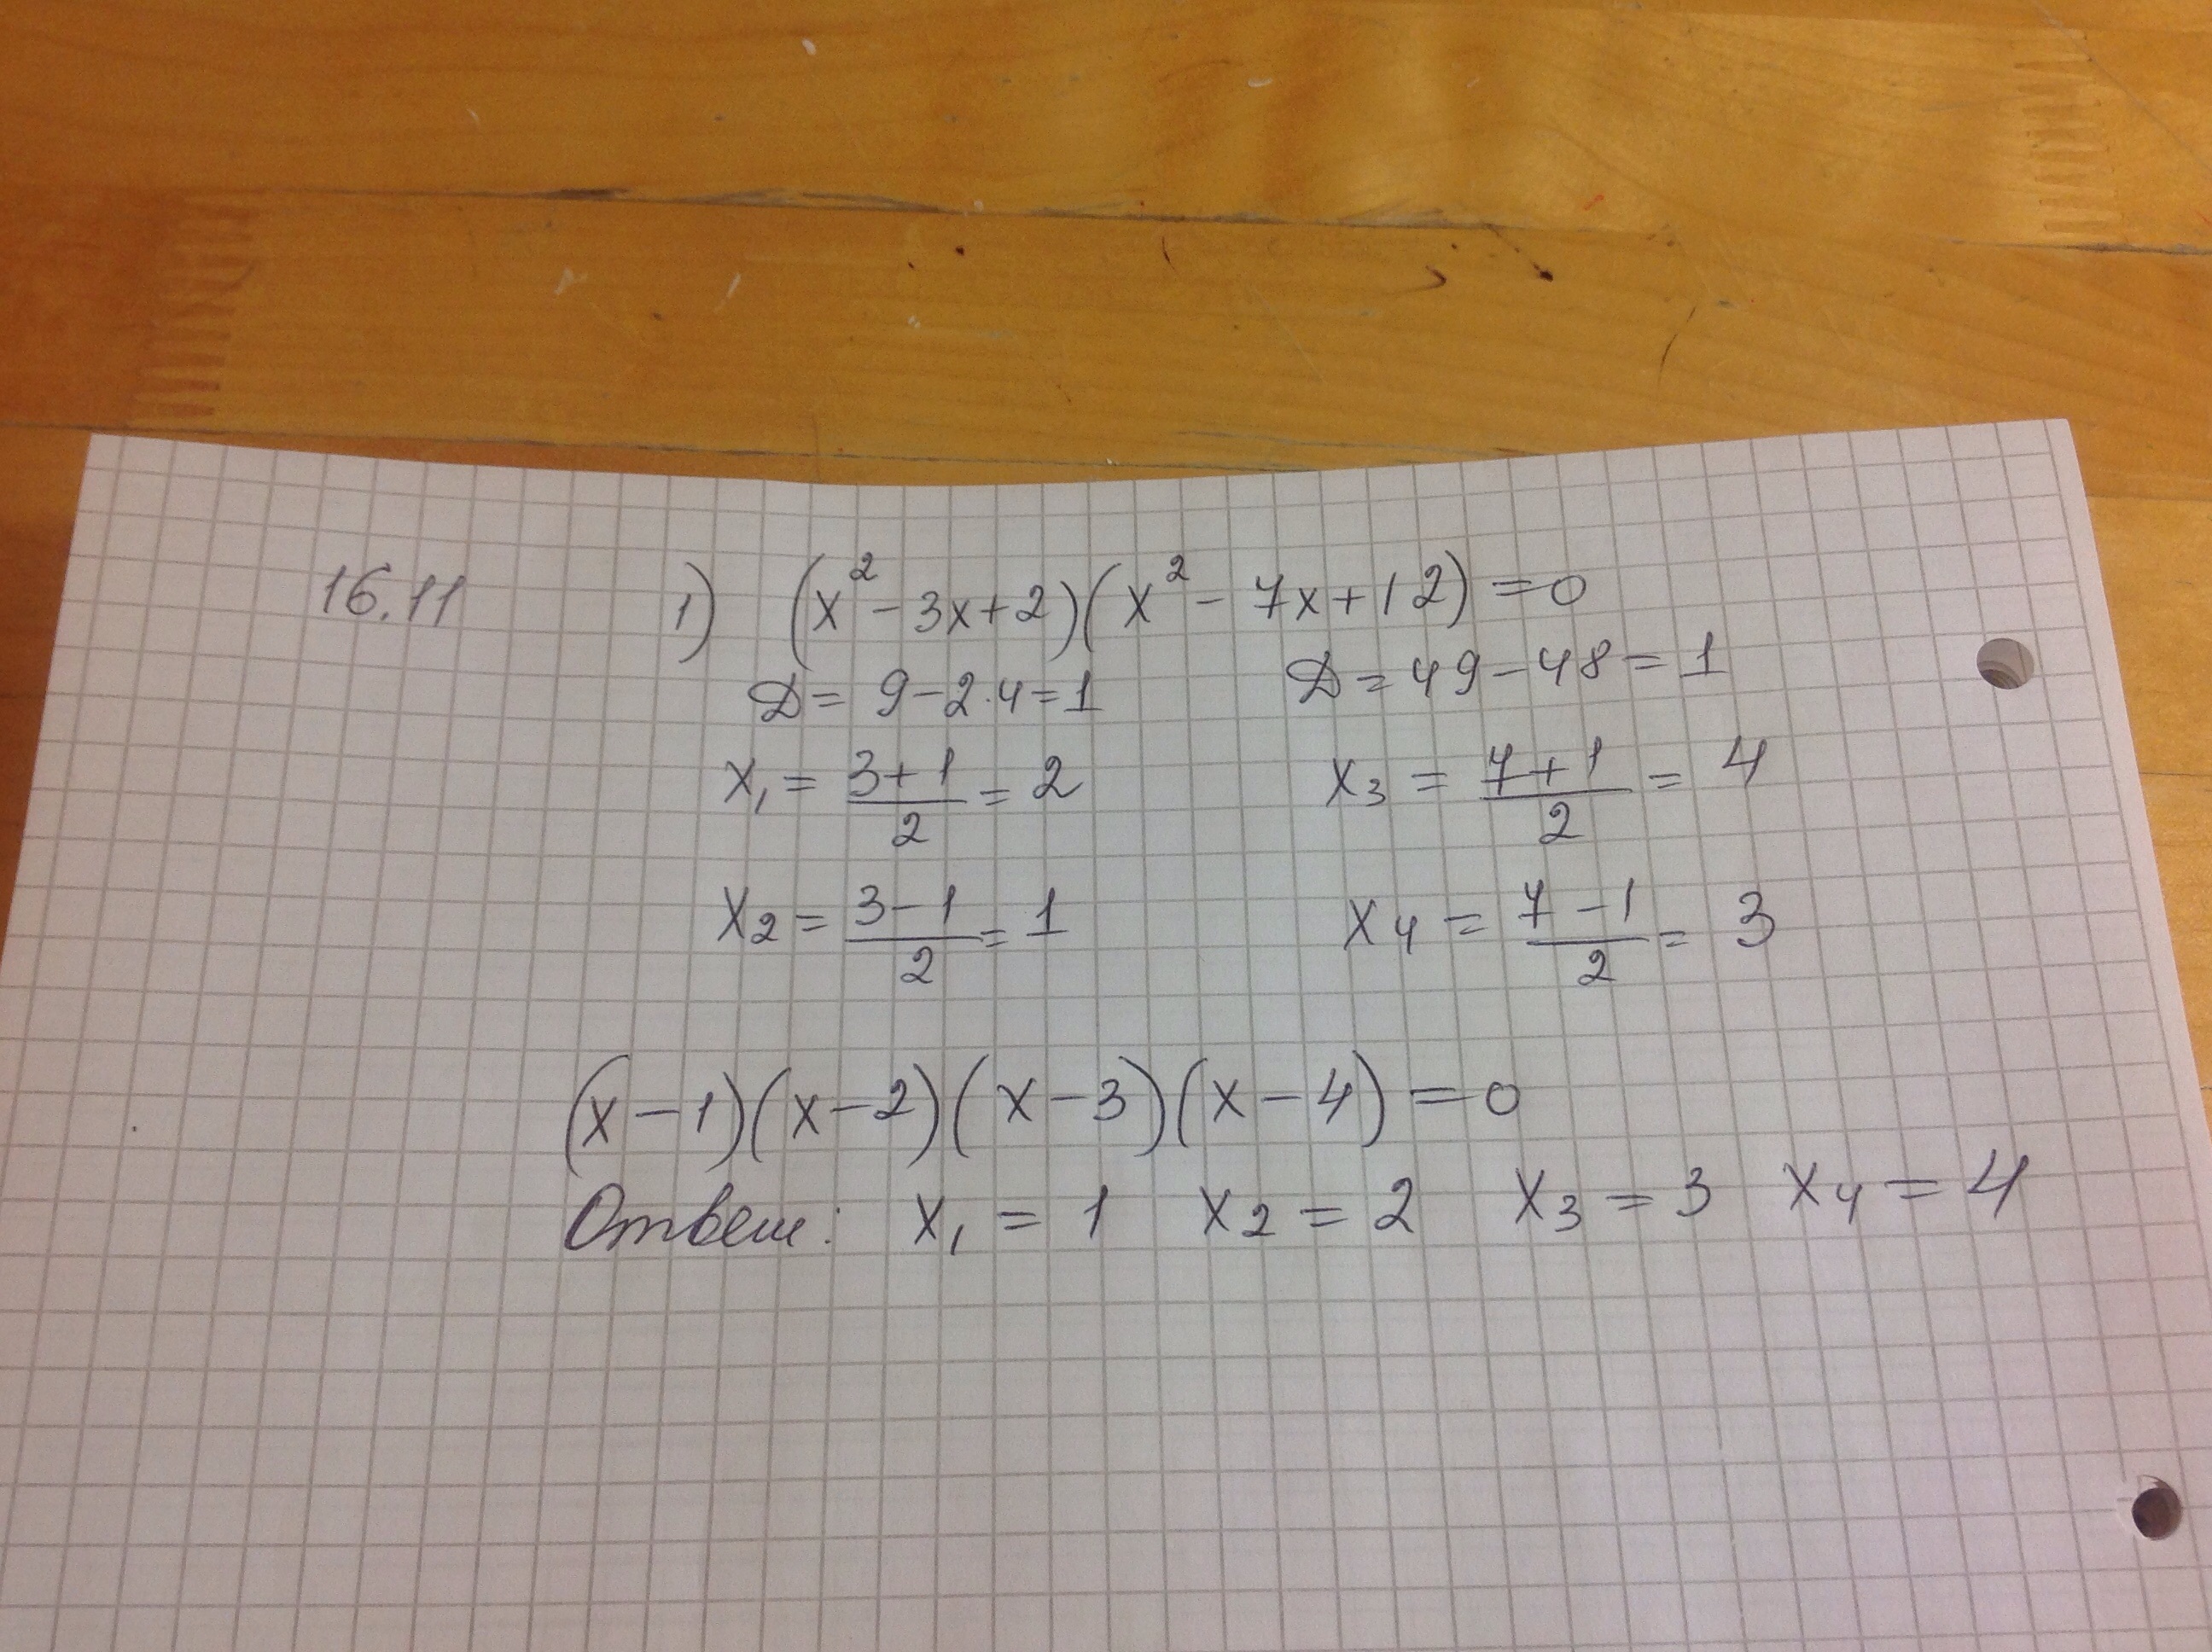 16.11 1) (x² - 3x + 2)(x² - 7x + 12) = 0
D = 9 - 2·4 = 1 D = 49 - 48 = 1
x₁ = (3+1)/2 = 2 x₃ = (7+1)/2 = 4
x₂ = (3-1)/2 = 1 x₄ = (7-1)/2 = 3
(x-1)(x-2)(x-3)(x-4) = 0
Ответ: x₁ = 1 x₂ = 2 x₃ = 3 x₄ = 4